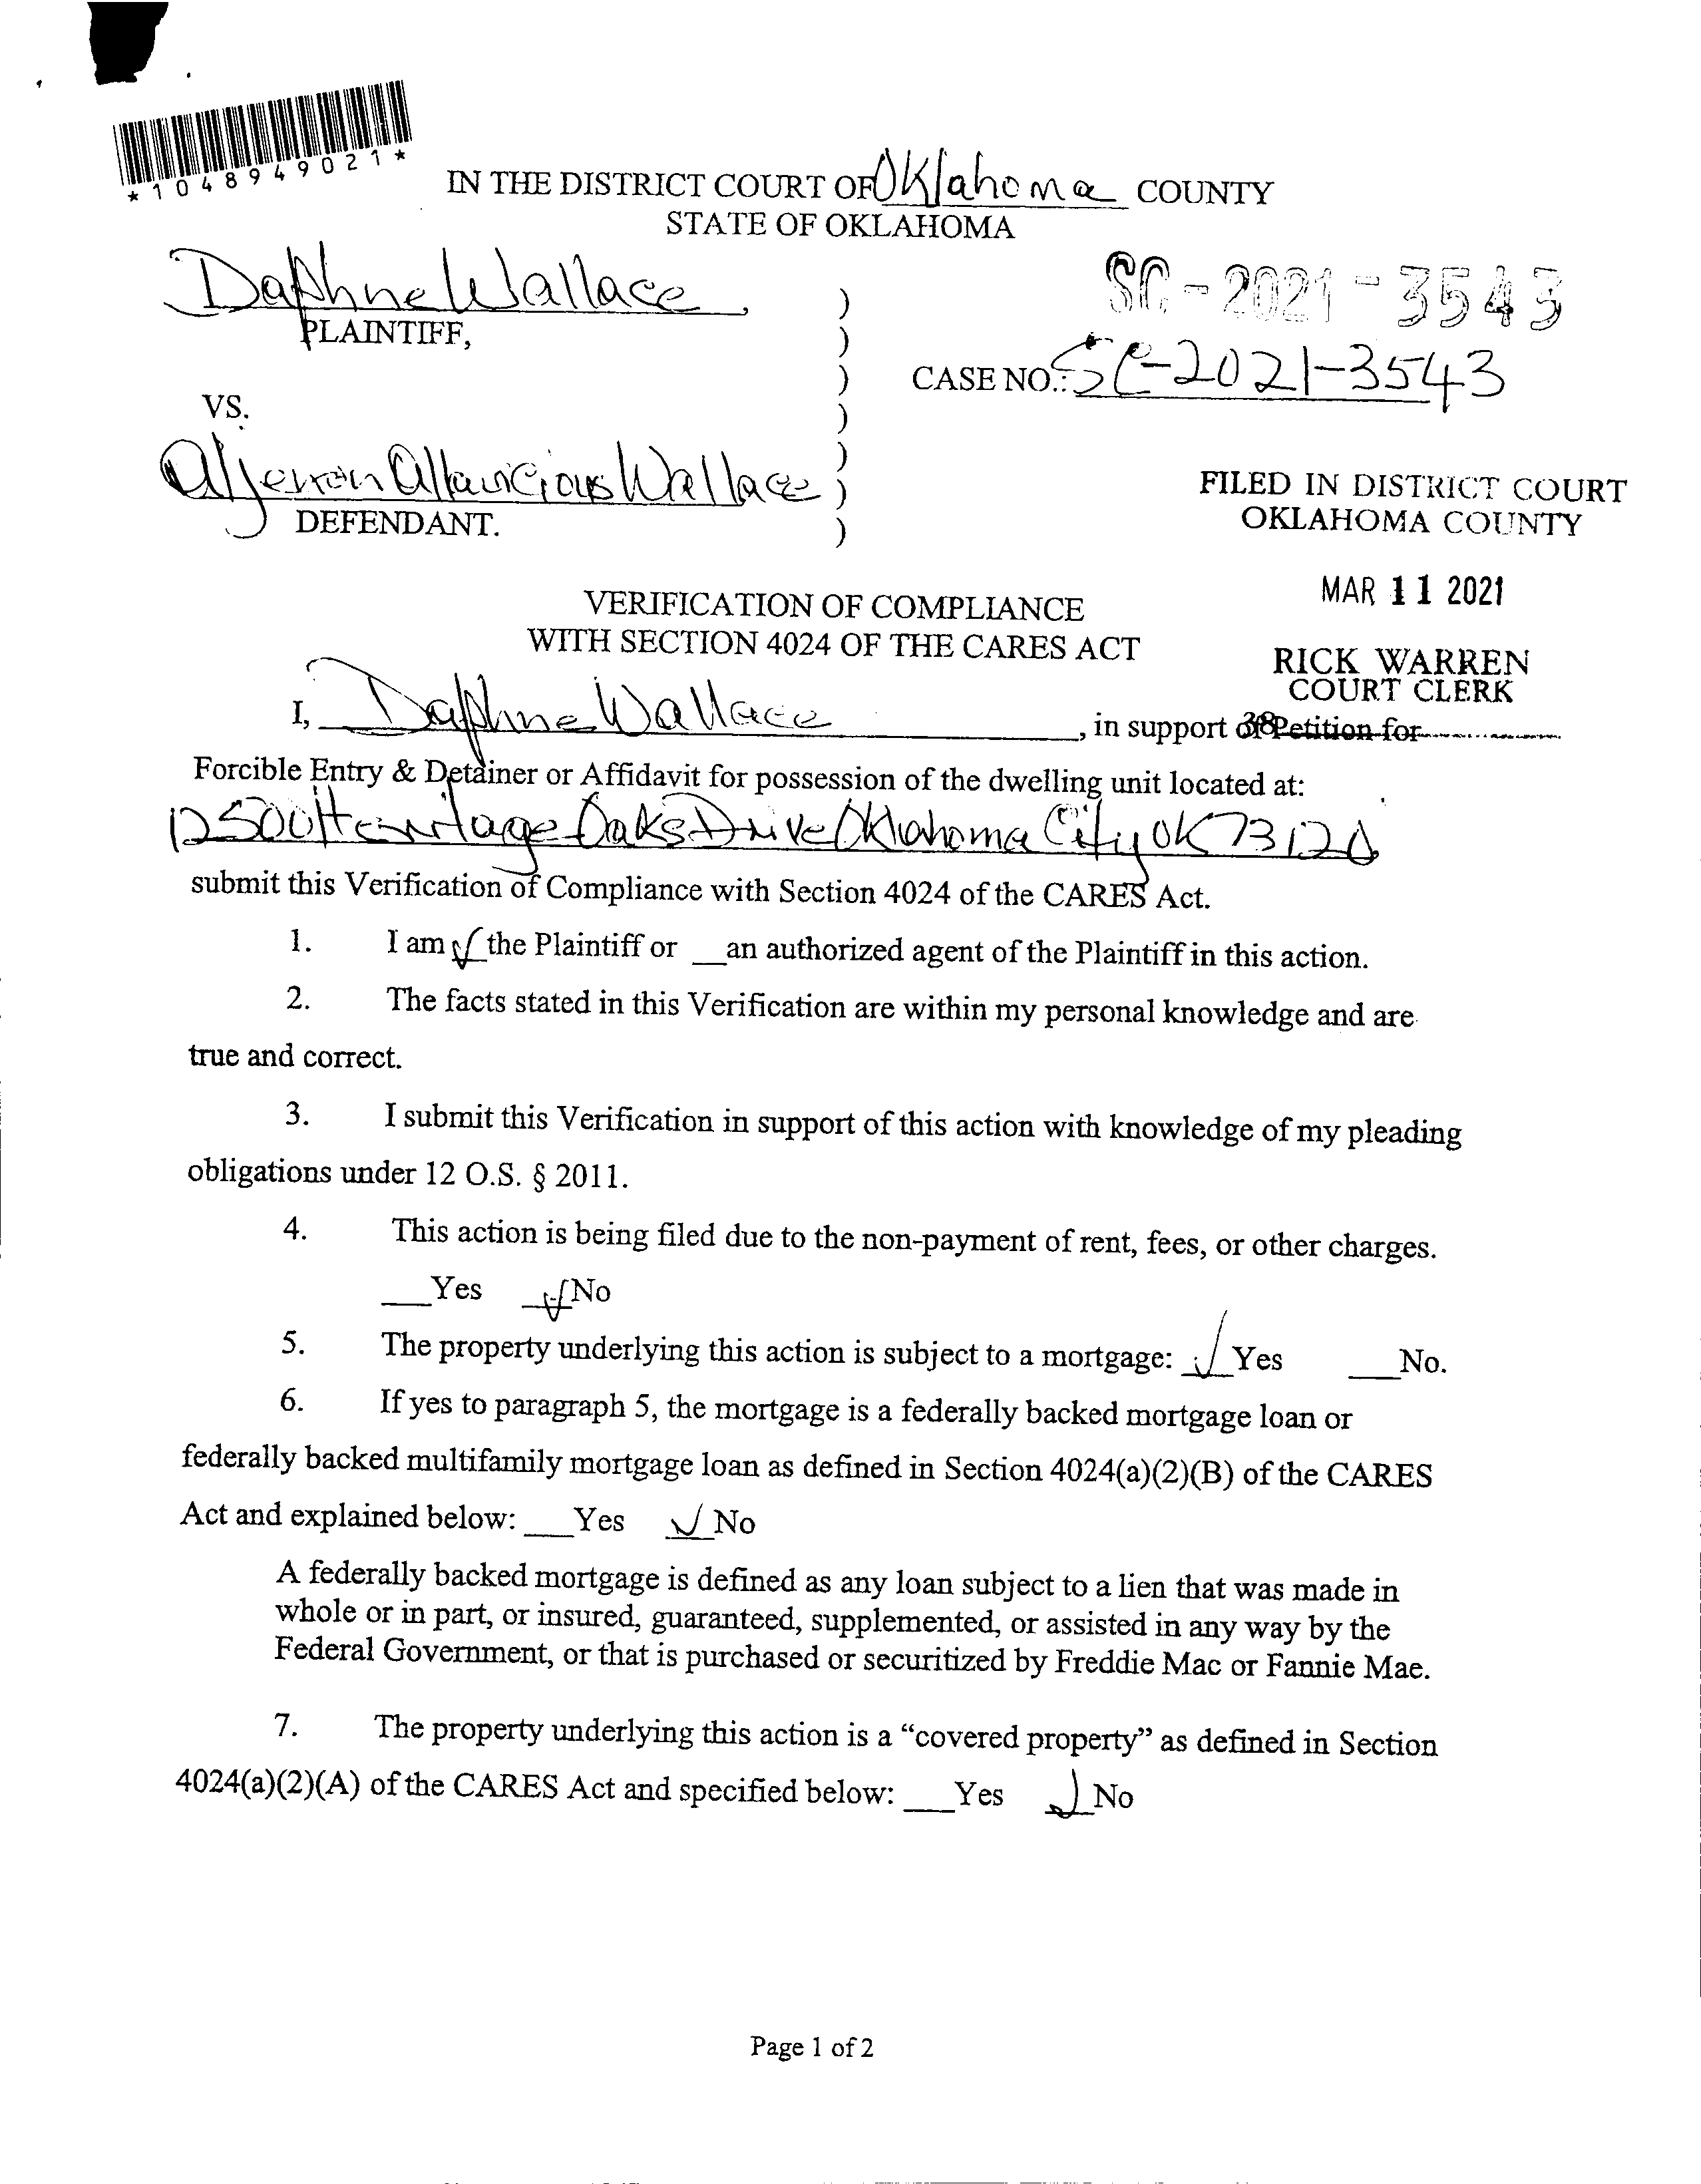 *1048949021*
IN THE DISTRICT COURT OF Oklahoma COUNTY
STATE OF OKLAHOMA
Daphne Wallace,
PLAINTIFF,
SC-2021-3543
CASE NO.: SC-2021-3543
VS.
Wallace
DEFENDANT.
)
)
)
)
)
)
)
FILED IN DISTRICT COURT
OKLAHOMA COUNTY
MAR 11 2021
RICK WARREN
COURT CLERK
38
VERIFICATION OF COMPLIANCE
WITH SECTION 4024 OF THE CARES ACT
I, Daphne Wallace, in support of Petition for
Forcible Entry & Detainer or Affidavit for possession of the dwelling unit located at:
12500 Heritage Oaks Drive Oklahoma City OK 73120
submit this Verification of Compliance with Section 4024 of the CARES Act.
1. I am ✓ the Plaintiff or __an authorized agent of the Plaintiff in this action.
2. The facts stated in this Verification are within my personal knowledge and are
true and correct.
3. I submit this Verification in support of this action with knowledge of my pleading
obligations under 12 O.S. § 2011.
4. This action is being filed due to the non-payment of rent, fees, or other charges.
___Yes ✓ No
5. The property underlying this action is subject to a mortgage: ✓ Yes ___No.
6. If yes to paragraph 5, the mortgage is a federally backed mortgage loan or
federally backed multifamily mortgage loan as defined in Section 4024(a)(2)(B) of the CARES
Act and explained below: ___Yes ✓ No
A federally backed mortgage is defined as any loan subject to a lien that was made in
whole or in part, or insured, guaranteed, supplemented, or assisted in any way by the
Federal Government, or that is purchased or securitized by Freddie Mac or Fannie Mae.
7. The property underlying this action is a “covered property” as defined in Section
4024(a)(2)(A) of the CARES Act and specified below: ___Yes ✓ No
Page 1 of 2